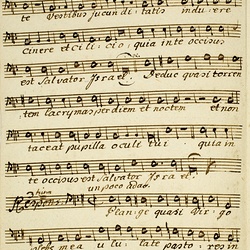 te vestibus jucundi tatis indu ere
cinere et cili cio, quia in te occisus
est Salvator Jsrael. Deduc quasi torren
tem lacrymas per diem et noctem et non
taceat pupilla oculi tui, quia in
te occisus est Salvator Jsrael.
un poco Adag.
Respons:
Plan ge quasi Vir go
plebs mea u lu late pasto res in